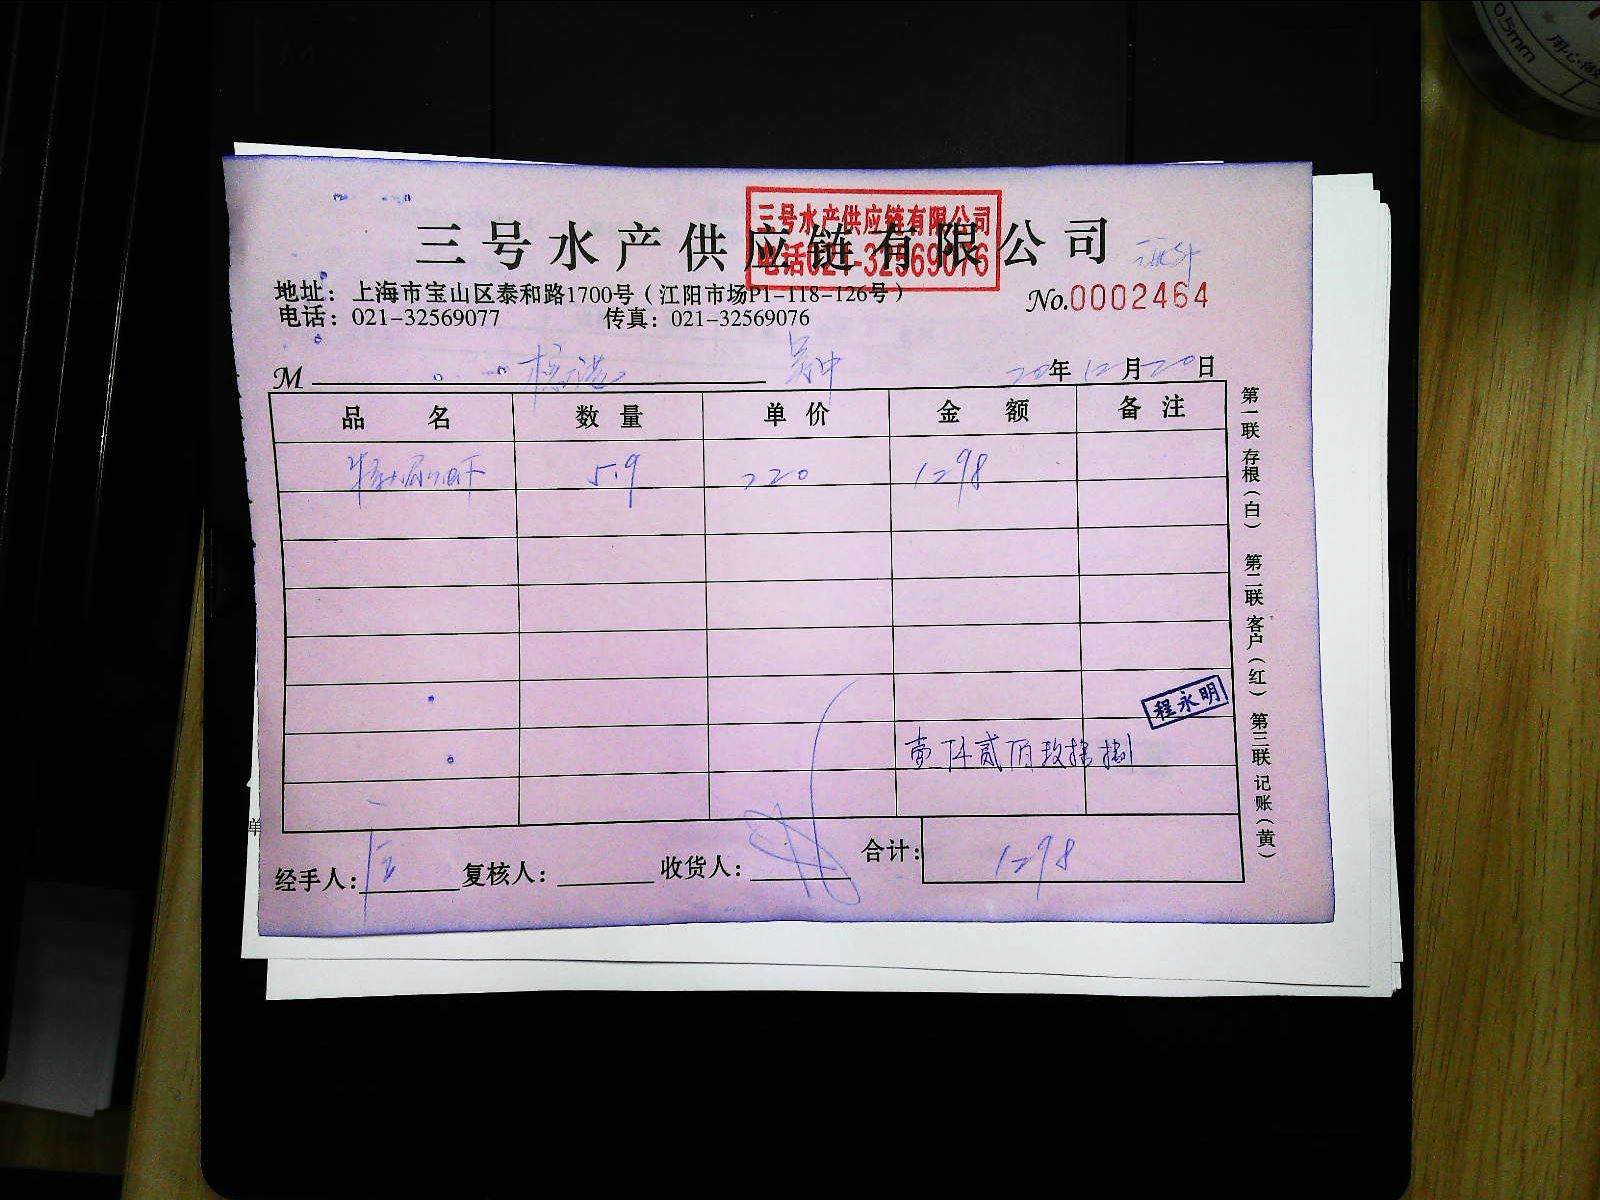 三号水产供应链有限公司
三号水产供应链有限公司
电话021-32569076
地址：上海市宝山区泰和路1700号（江阳市场P1-118-126号）
No.0002464
电话：021-32569077 传真：021-32569076
M 20年12月20日
品名 数量 单价 金额 备注
5.9 220 1298
程永明
壹仟贰佰玖拾捌
经手人： 复核人： 收货人： 合计： 1298
第一联 存根（白） 第二联 客户（红） 第三联 记账（黄）
0.5mm
单